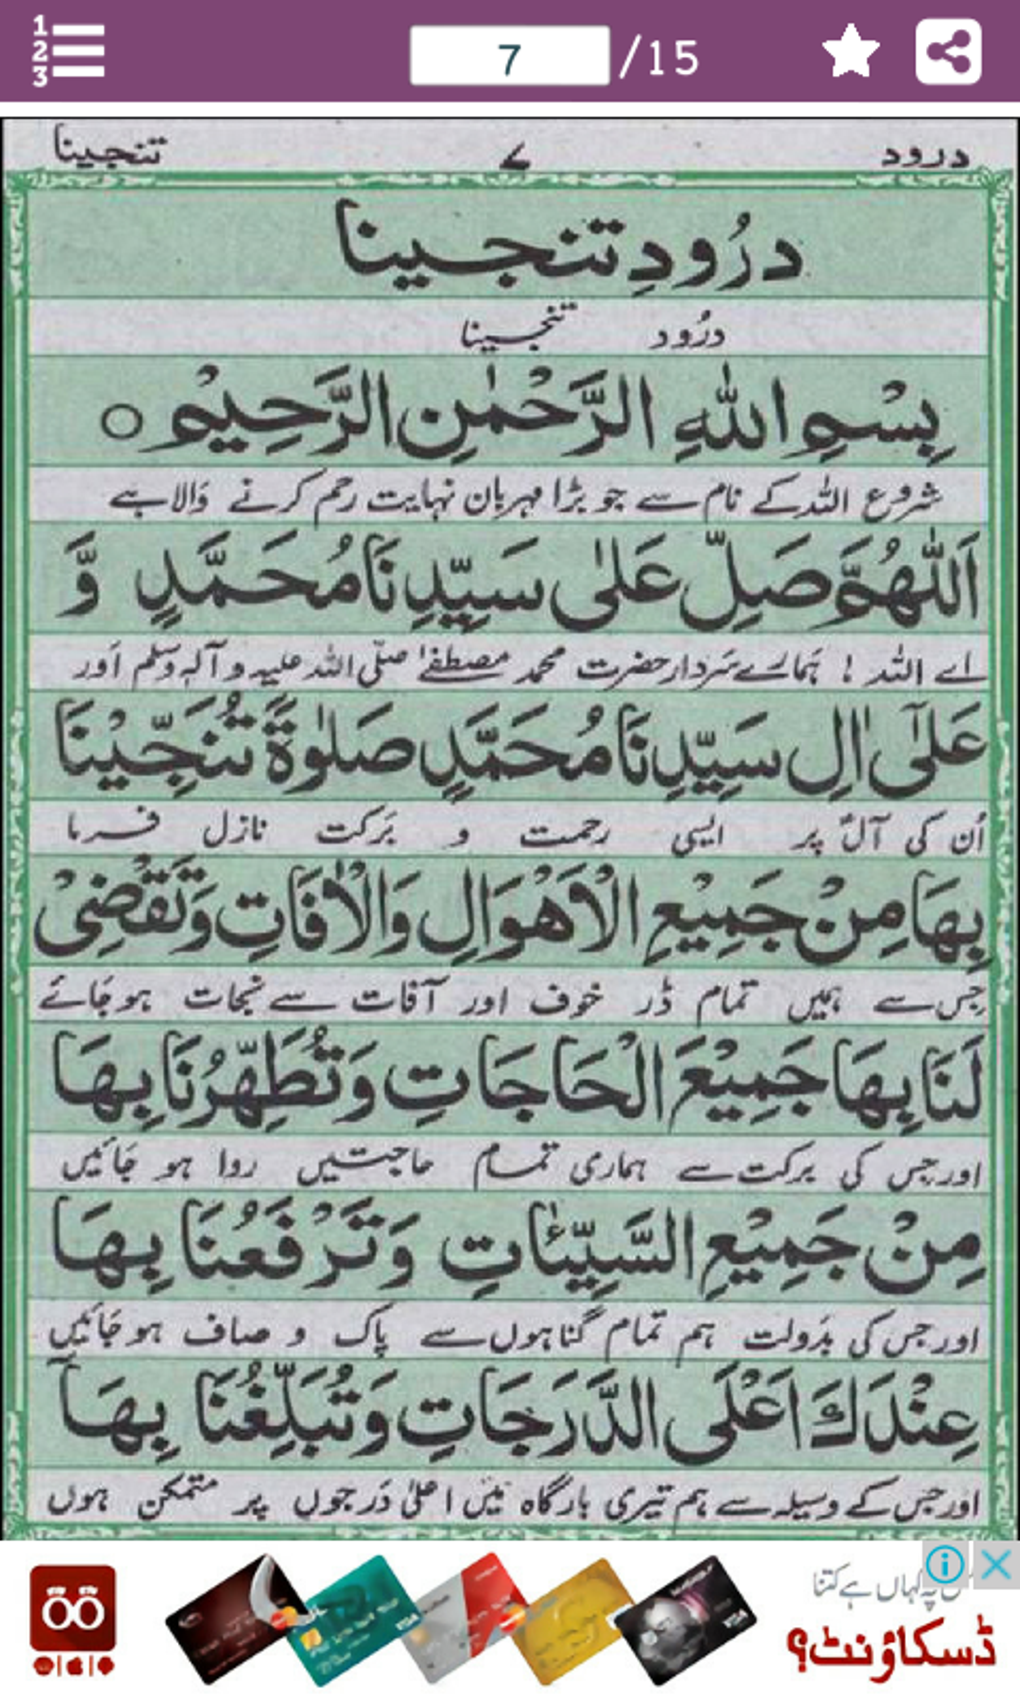 1
2
3
7 /15
درود ۷ تنجینا
درُودِ تنجینا
درُود تنجینا
بِسْمِ اللّٰهِ الرَّحْمٰنِ الرَّحِيْمِ ○
شروع اللہ کے نام سے جو بڑا مہربان نہایت رحم کرنے والا ہے
اَللّٰهُمَّ صَلِّ عَلٰى سَيِّدِنَا مُحَمَّدٍ وَّ
اے اللہ ! ہمارے سَردار حضرت محمد مصطفےٰ صلّی اللہ علیہ و آلہٖ وسلم اَور
عَلٰٓى اٰلِ سَيِّدِنَا مُحَمَّدٍ صَلٰوةً تُنَجِّيْنَا
اُن کی آلؑ پر ایسی رحمت و بَرکت نازل فرما
بِهَا مِنْ جَمِيْعِ الْاَهْوَالِ وَالْاٰفَاتِ وَتَقْضِىْ
جِس سے ہمیں تمام ڈر خوف اور آفات سے نجات ہو جَائے
لَنَا بِهَا جَمِيْعَ الْحَاجَاتِ وَتُطَهِّرُنَا بِهَا
اور جِس کی برکت سے ہماری تمام حاجتیں روا ہو جَائیں
مِنْ جَمِيْعِ السَّيِّئٰاتِ وَتَرْفَعُنَا بِهَا
اور جس کی بدَولت ہم تمام گناہوں سے پاک و صاف ہو جَائیں
عِنْدَكَ اَعْلَى الدَّرَجَاتِ وَتُبَلِّغُنَا بِهَا
اور جس کے وسیلہ سے ہم تیری بارگاہ میں اعلیٰ دَرجوں پر متمکن ہوں
پہ کہاں ہے کتنا
ڈسکاؤنٹ؟
VISA
VISA